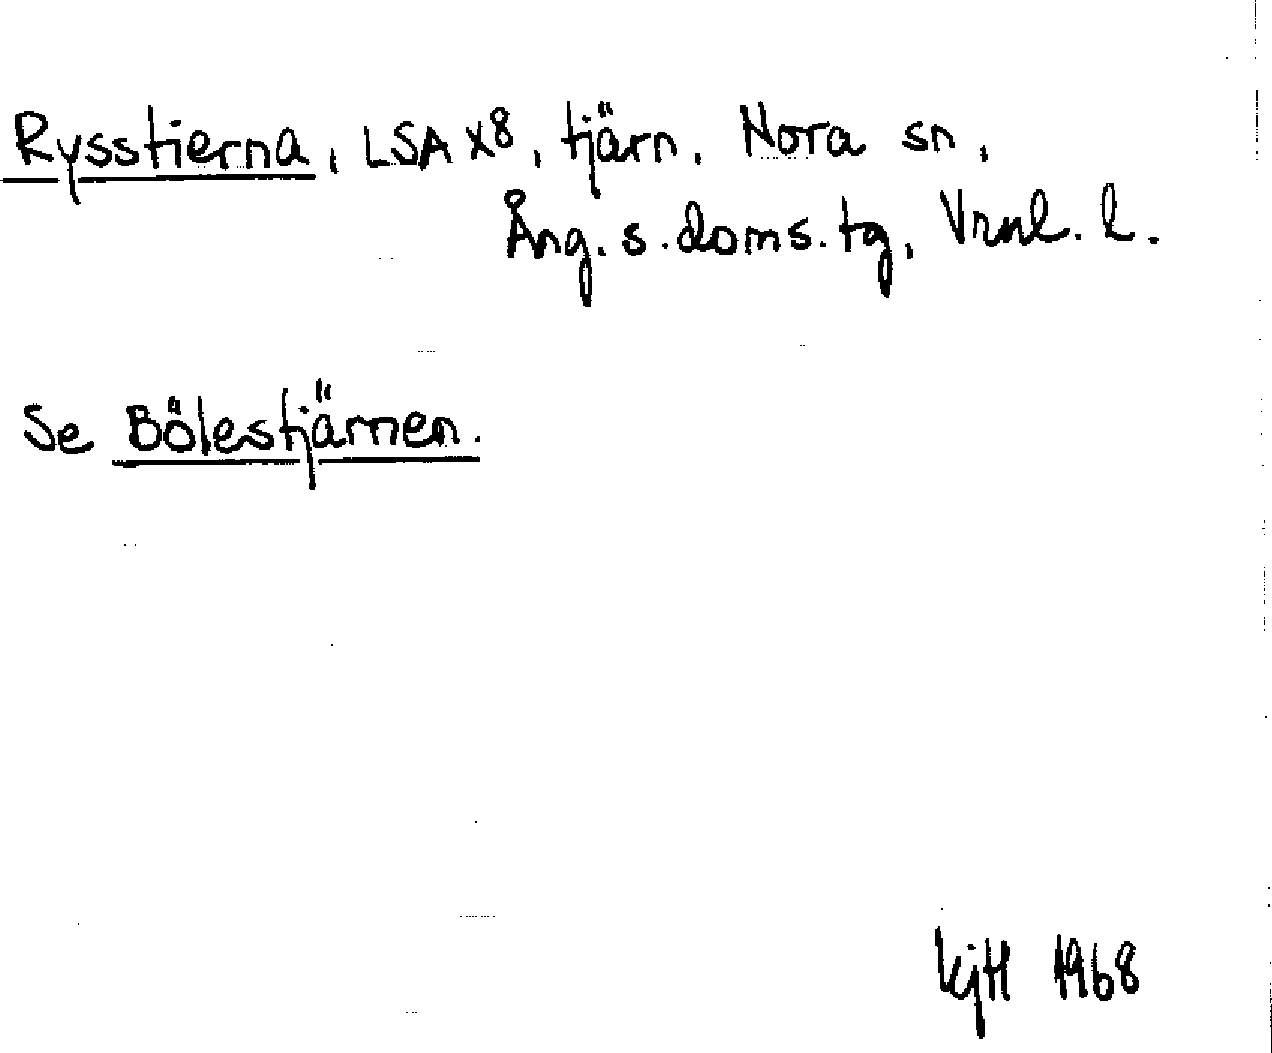 Rysstierna, LSA X8, tjärn. Nora sn,
Ång. s. doms. tg, Vrnl. l.
Se Bölestjärnen.
KjH 1968